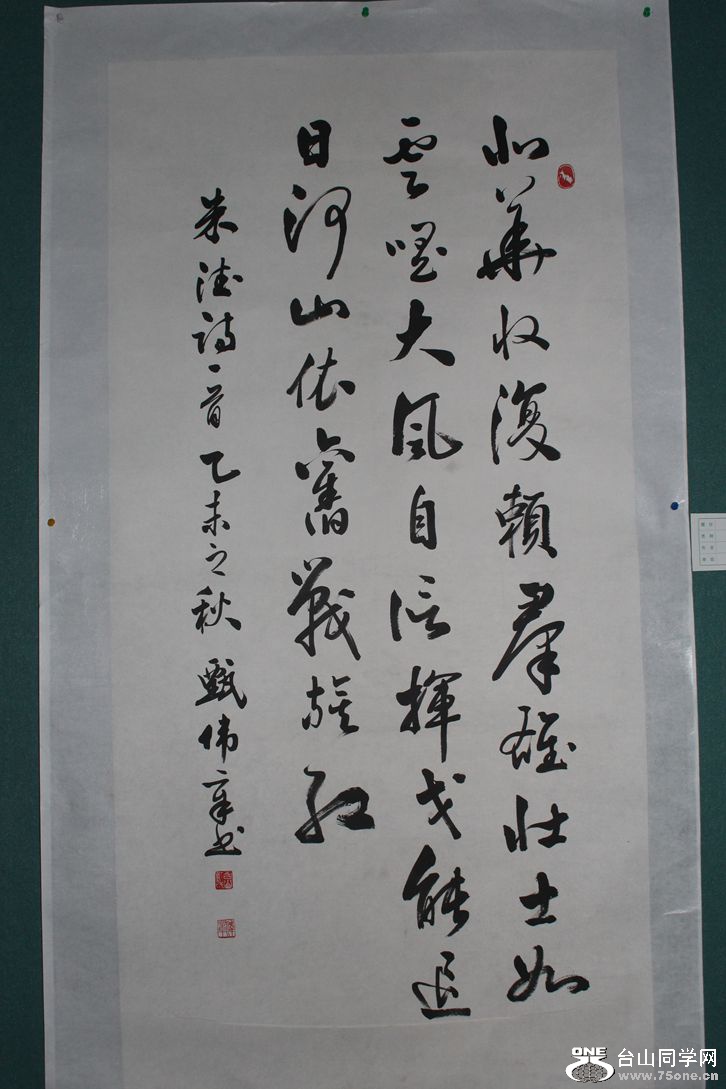 北華收復賴羣雄壮士如
雲唱大風自信揮戈能退
日河山依舊戰旗紅
朱德詩一首乙未之秋甄伟章书
ONE 台山同学网
www.75one.cn